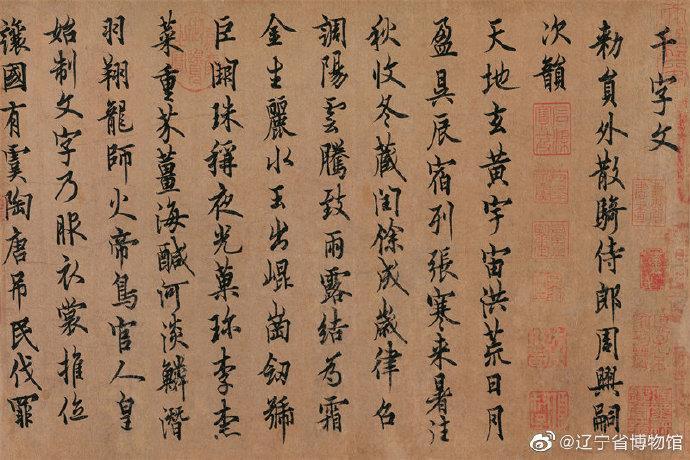 千字文
勑員外散騎侍郎周興嗣
次韻
天地玄黃宇宙洪荒日月
盈昃辰宿列張寒来暑往
秋收冬蔵閏餘成歲律召
調陽雲騰致雨露結為霜
金生麗水玉出崐崗釰號
巨闕珠稱夜光菓珎李柰
菜重芥薑海醎河淡鱗潛
羽翔龍師火帝鳥官人皇
始制文字乃服衣裳推位
讓國有虞陶唐吊民伐罪
@辽宁省博物馆